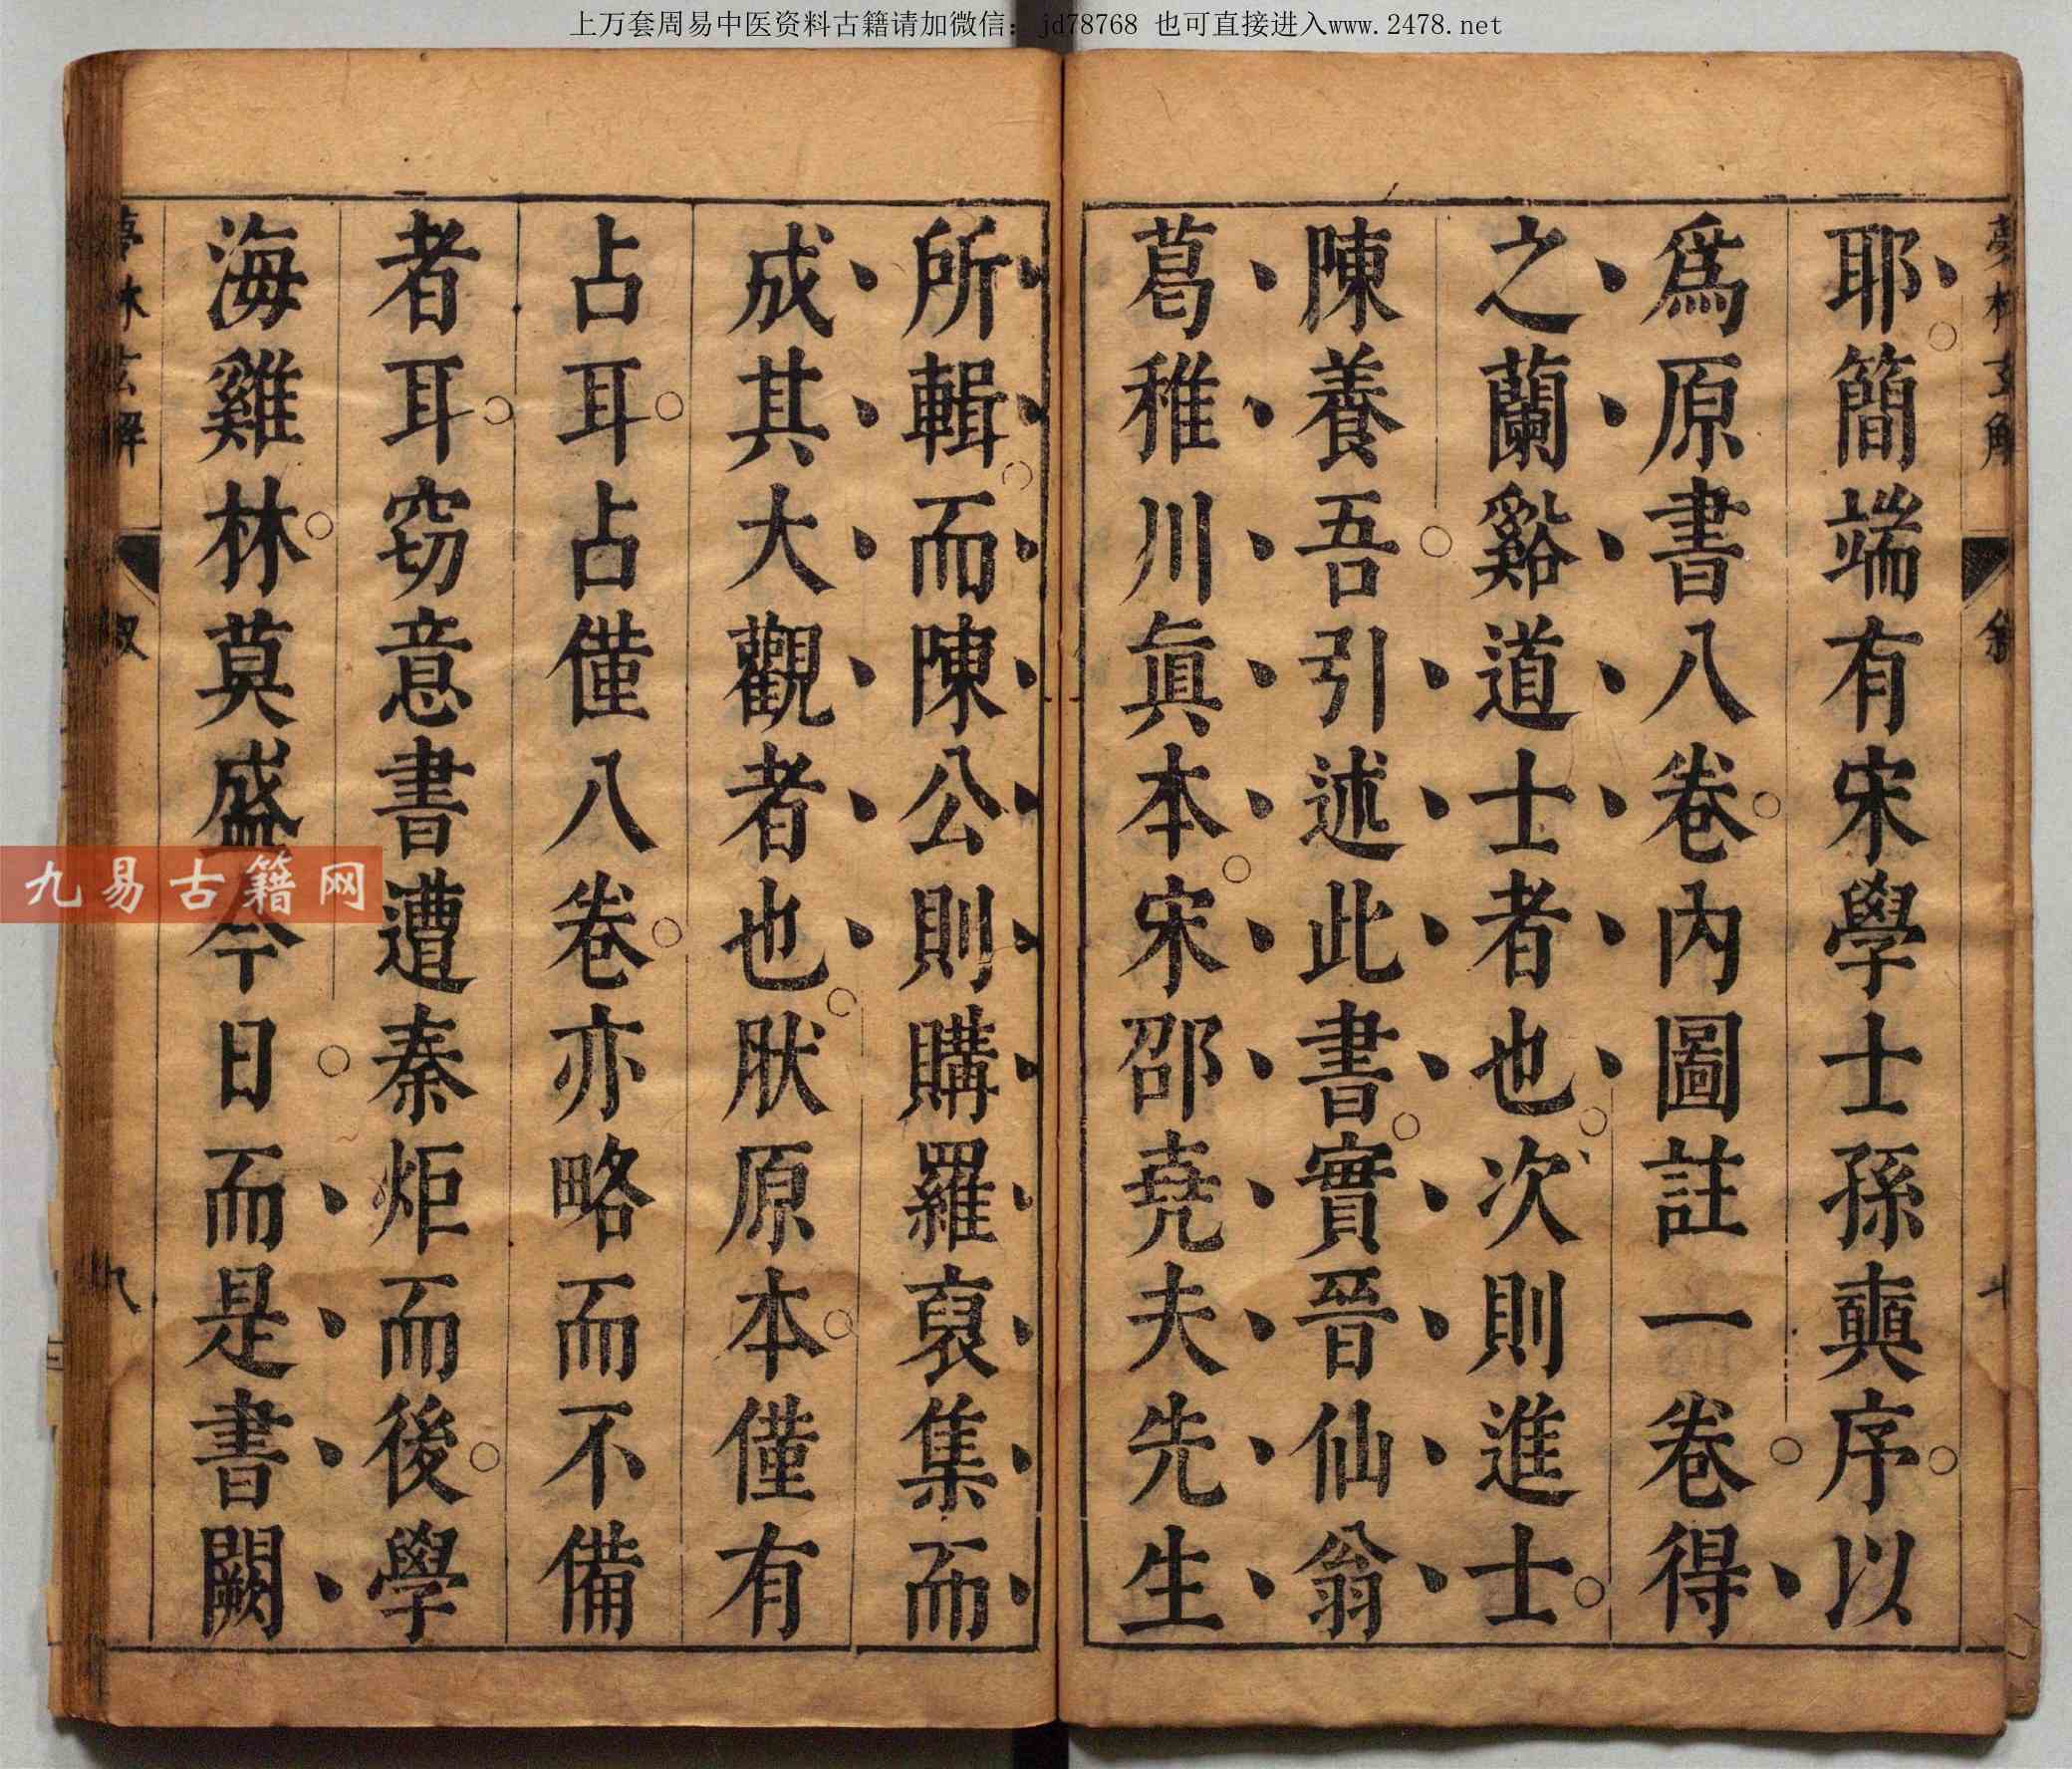 上万套周易中医资料古籍请加微信：jd78768 也可直接进入www.2478.net
耶簡端有宋學士孫奭序以
爲原書八卷內圖註一卷得
之蘭谿道士者也次則進士
陳養吾引述此書實晉仙翁
葛稚川眞本宋邵堯夫先生
所輯而陳公則購羅裒集而
成其大觀者也肰原本僅有
占耳占僅八卷亦略而不備
者耳窃意書遭秦炬而後學
海雞林莫盛今日而是書闕
夢林玄解
叙
八
九易古籍网